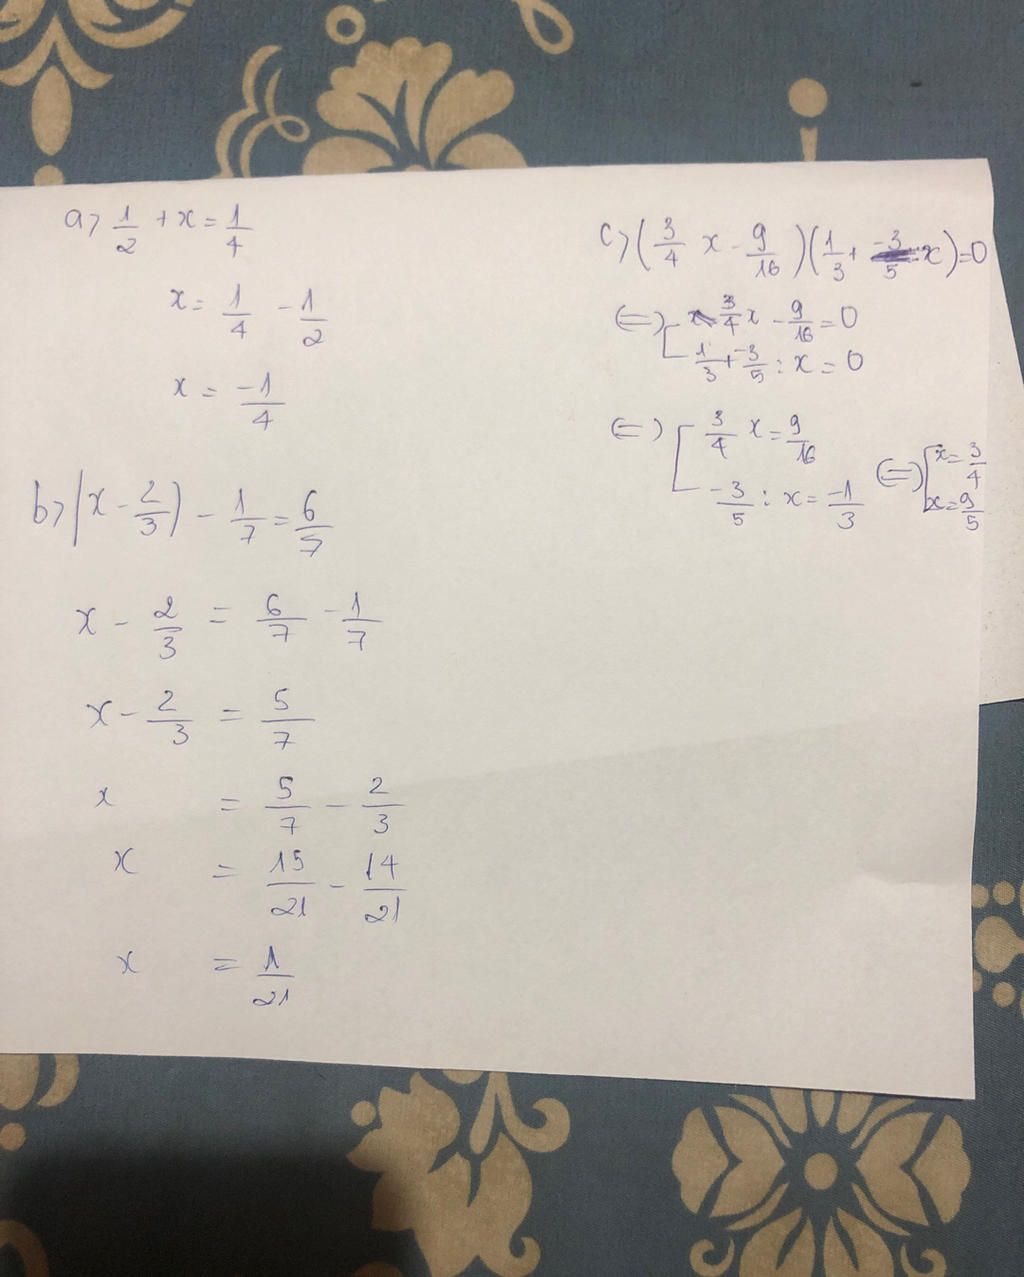 a> 1/2 + x = 1/4
x = 1/4 - 1/2
x = -1/4
b> (x - 2/3) - 1/7 = 6/7
x - 2/3 = 6/7 - 1/7
x - 2/3 = 5/7
x = 5/7 - 2/3
x = 15/21 - 14/21
x = 1/21
c> (3/4 x - 9/16)(1/3 + -3/5 : x) = 0
(=) [ 3/4 x - 9/16 = 0
1/3 + -3/5 : x = 0
(=) [ 3/4 x = 9/16
-3/5 : x = -1/3
(=) [ x = 3/4
x = 9/5